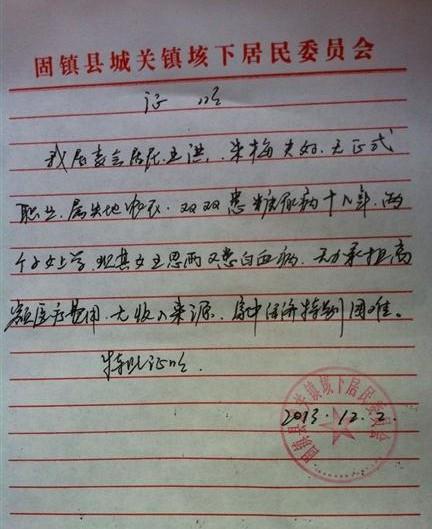 固镇县城关镇垓下居民委员会
证 明
我居委会居民王洪、朱梅夫妇，无正式
职业，属失地农民，双双患糖尿病十八年，两
个子女上学，现其女王思雨又患白血病，无力承担高
额医疗费用，无收入来源，家中经济特别困难。
特此证明。
2013.12.2.
固镇县城关镇垓下居民委员会